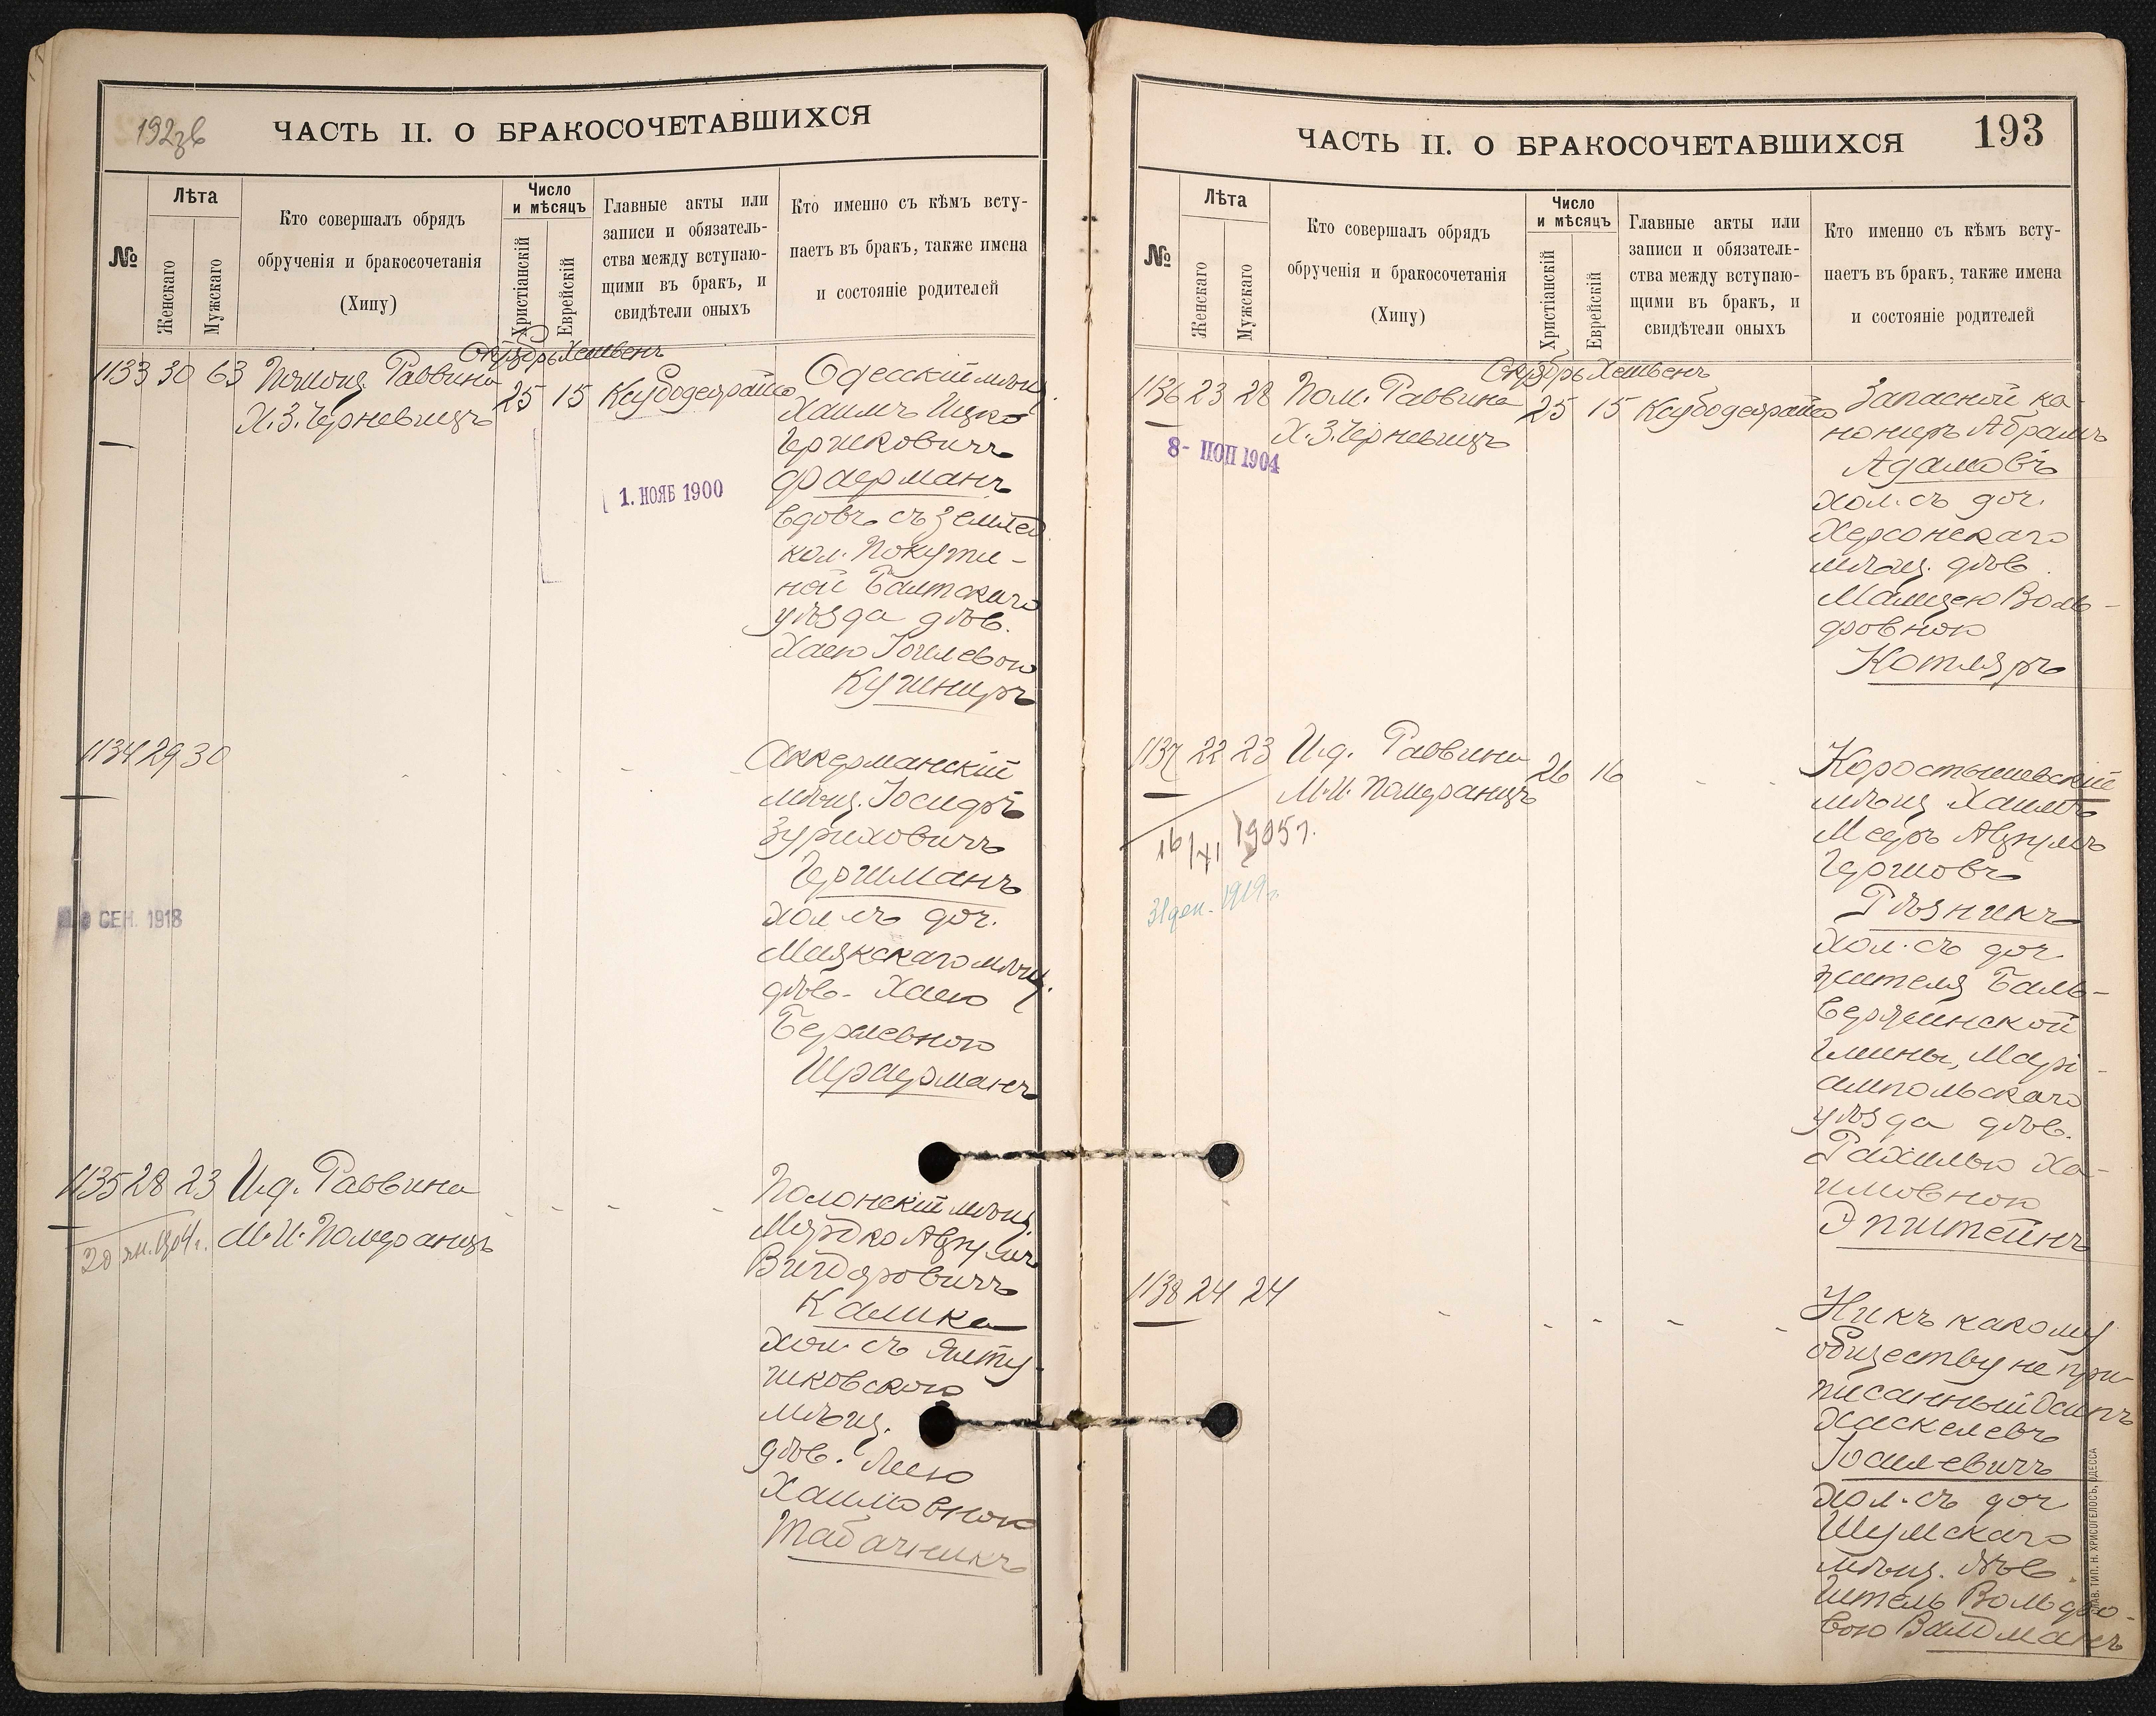 192зв
ЧАСТЬ II. О БРАКОСОЧЕТАВШИХСЯ
№
Лѣта
Женскаго
Мужскаго
Кто совершалъ обрядъ
обрученія и бракосочетанія
(Хипу)
Число
и мѣсяцъ
Христіанскій
Еврейскій
Главные акты или
записи и обязатель-
ства между вступаю-
щими въ бракъ, и
свидѣтели оныхъ
Кто именно съ кѣмъ всту-
паетъ въ бракъ, также имена
и состояніе родителей
Октябрь Хешвенъ
1133 30 63 Помощ. Раввина 25 15
Х.З. Черневицъ
1. НОЯБ 1900
Одесскій мѣщ.
Хаимъ Ицко
Гершковичъ
Фаерманъ
вдовъ съ землед.
кол. Покути-
ной Балтскаго
уѣзда дѣв.
Хаею Іоилевою
Кушниръ
1134 29 30
СЕН. 1918
Аккерманскій
мѣщ. Іосифъ
Зуриховичъ
Гершманъ
хол. съ доч.
Маякскаго мѣщ.
дѣв. Хаею
Берлевною
Шраерманъ
1135 28 23 И.д. Раввина
М.И. Померанцъ
20 ян. 1904 г.
Полонскій мѣщ.
Мордко Аврумъ
Вигдоровичъ
Камка
хол. съ Ялту-
шковскою
мѣщ.
дѣв. Леею
Хаимовною
Табачникъ
193
ЧАСТЬ II. О БРАКОСОЧЕТАВШИХСЯ
№
Лѣта
Женскаго
Мужскаго
Кто совершалъ обрядъ
обрученія и бракосочетанія
(Хипу)
Число
и мѣсяцъ
Христіанскій
Еврейскій
Главные акты или
записи и обязатель-
ства между вступаю-
щими въ бракъ, и
свидѣтели оныхъ
Кто именно съ кѣмъ всту-
паетъ въ бракъ, также имена
и состояніе родителей
Октябрь Хешвенъ
1136 23 28 Пом. Раввина 25 15
Х.З. Черневицъ
1904
Запасной ка-
нониръ Абрамъ
Адамовъ
хол. съ доч.
Херсонскаго
мѣщ. дѣв.
Малцею Воль-
фовною
Котляръ
1137 22 23 И.д. Раввина 26 16
М.И. Померанцъ
16/XI 1905 г.
31 дек. 1919 г.
Коростышевскій
мѣщ. Хаимъ
Мееръ Аврумъ
Гершовъ
Рѣзникъ
хол. съ доч.
жителя Баль-
вержинской
гмины, Марі-
ампольскаго
уѣзда дѣв.
Рахилью Ха-
имовною
Эпштейнъ
1138 24 24
Ни къ какому
обществу не при-
писанный Осипъ
Хаскелевъ
Іоилевичъ
хол. съ доч.
Шумскаго
мѣщ. дѣв.
Ител Вольфо-
вою Вайдманъ
СЛАВ. ТИП. Н. ХРИСОГЕЛОСЪ, ОДЕССА